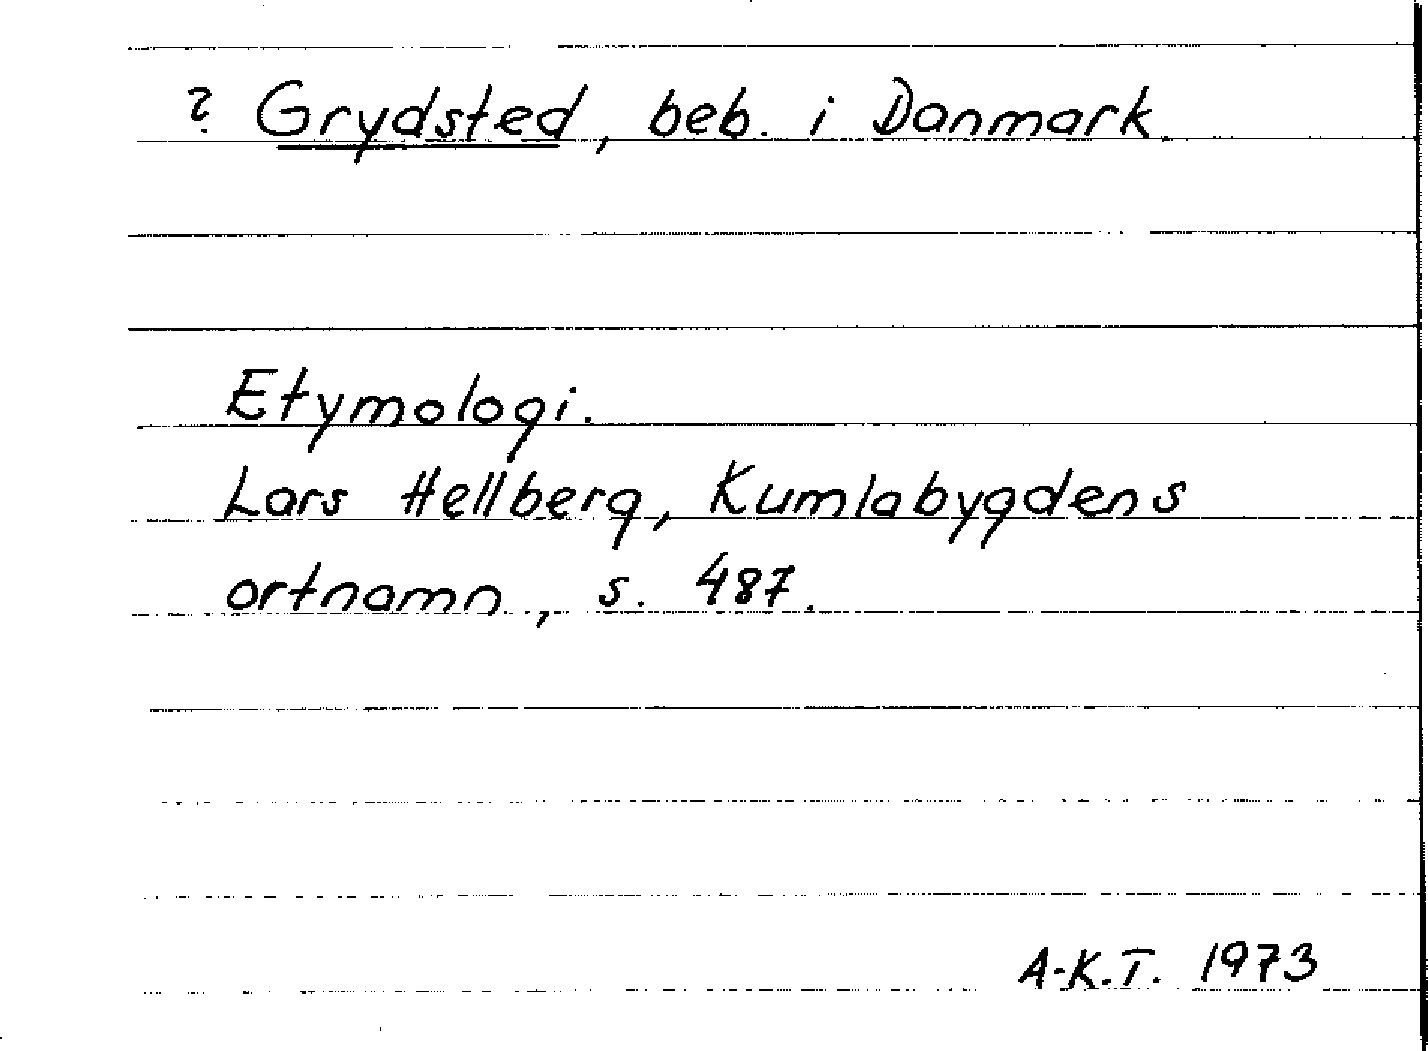 ? Grydsted, beb. i Danmark.
Etymologi.
Lars Hellberg, Kumlabygdens
ortnamn, s. 487.
A-K.T. 1973